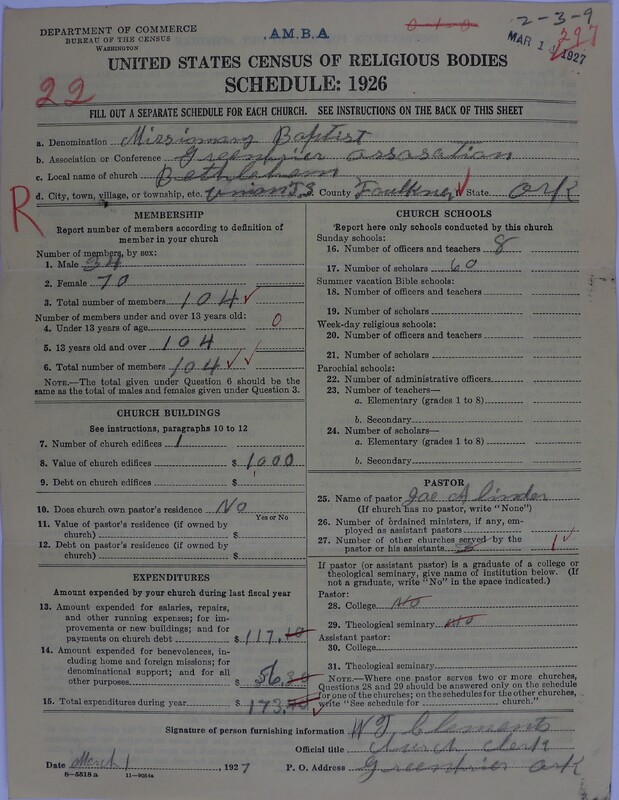 DEPARTMENT OF COMMERCE
BUREAU OF THE CENSUS
WASHINGTON
.A.M.B.A
2-3-9
297
MAR 1 1927
UNITED STATES CENSUS OF RELIGIOUS BODIES
SCHEDULE: 1926
22
FILL OUT A SEPARATE SCHEDULE FOR EACH CHURCH. SEE INSTRUCTIONS ON THE BACK OF THIS SHEET
a. Denomination Missionary Baptist
b. Association or Conference Greenbrier assosation
c. Local name of church Bethleham
d. City, town, village, or township, etc. Union T.S. County Faulkner State Ark
R
MEMBERSHIP
Report number of members according to definition of member in your church
Number of members, by sex:
1. Male 34
2. Female 70
3. Total number of members 104
Number of members under and over 13 years old:
4. Under 13 years of age 0
5. 13 years old and over 104
6. Total number of members 104
NOTE.—The total given under Question 6 should be the
same as the total of males and females given under Question 3.
CHURCH BUILDINGS
See instructions, paragraphs 10 to 12
7. Number of church edifices 1
8. Value of church edifices $ 1000
9. Debt on church edifices $
10. Does church own pastor's residence No
Yes or No
11. Value of pastor's residence (if owned by
church) $
12. Debt on pastor's residence (if owned by
church) $
EXPENDITURES
Amount expended by your church during last fiscal year
13. Amount expended for salaries, repairs,
and other running expenses; for im-
provements or new buildings; and for
payments on church debt $ 117.10
14. Amount expended for benevolences,
including home and foreign missions; for
denominational support; and for all
other purposes $ 56.30
15. Total expenditures during year $ 173.40
CHURCH SCHOOLS
Report here only schools conducted by this church
Sunday schools:
16. Number of officers and teachers 8
17. Number of scholars 60
Summer vacation Bible schools:
18. Number of officers and teachers
19. Number of scholars
Week-day religious schools:
20. Number of officers and teachers
21. Number of scholars
Parochial schools:
22. Number of administrative officers
23. Number of teachers—
a. Elementary (grades 1 to 8)
b. Secondary
24. Number of scholars—
a. Elementary (grades 1 to 8)
b. Secondary
PASTOR
25. Name of pastor Joe A Linder
(If church has no pastor, write "None")
26. Number of ordained ministers, if any, em-
ployed as assistant pastors
27. Number of other churches served by the
pastor or his assistants 1
If pastor (or assistant pastor) is a graduate of a college or
theological seminary, give name of institution below. (If
not a graduate, write "No" in the space indicated.)
Pastor:
28. College No
29. Theological seminary No
Assistant pastor:
30. College
31. Theological seminary
NOTE.—Where one pastor serves two or more churches,
Questions 28 and 29 should be answered only on the schedule
for one of the churches; on the schedules for the other churches,
write "See schedule for church."
Signature of person furnishing information W T Clements
Official title church clerk
Date March 1, 1927 P. O. Address Greenbrier Ark
8-5518 a 11-9264a